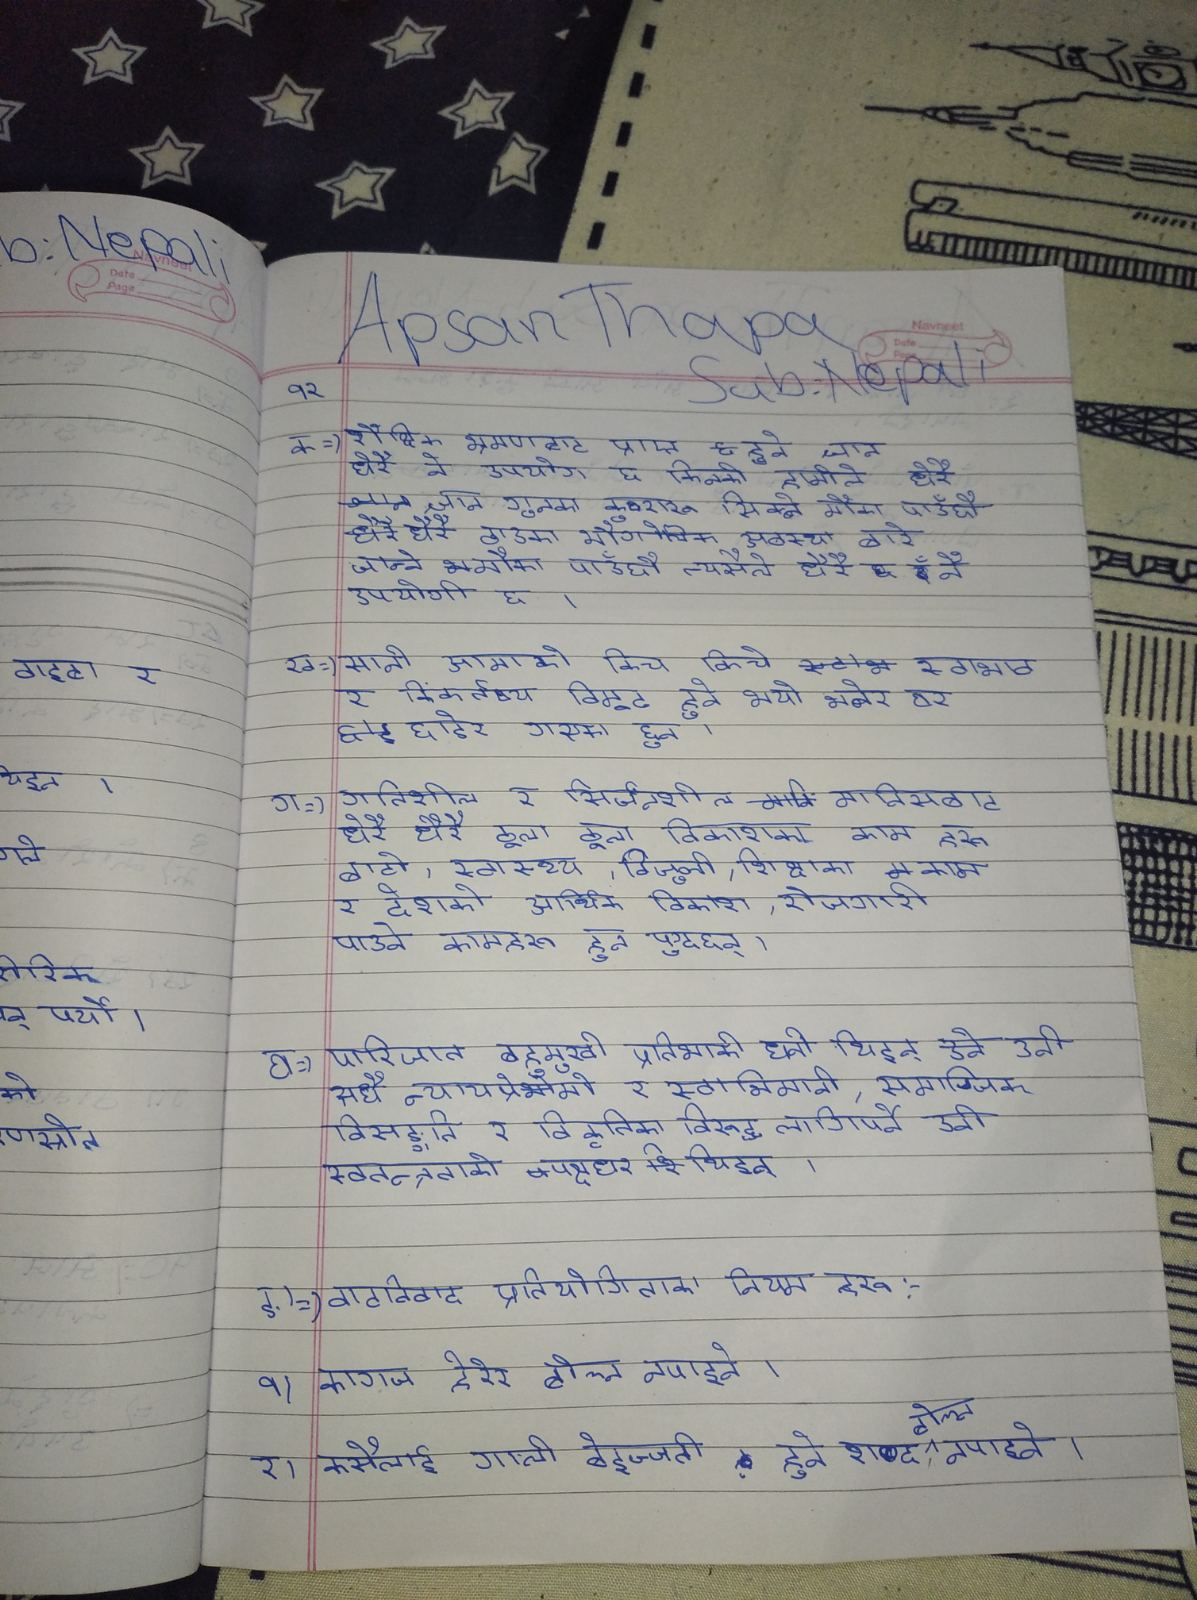 b: Nepali
Navneet
Date
Page
वाइटा र
थिइन ।
गले
न् पर्यो ।
को
Apsan Thapa
Navneet
Date
Sub: Nepali
१२
क=) शैक्षिक भ्रमणबाट प्राप्त हुने ज्ञान
धेरै नै उपयोग छ किनकी हामीले धेरै
ज्ञान गुनका कुराहरू सिक्ने मौका पाउँछौ
धेरै धेरै ठाउका भौगोलिक अवस्था बारे
जान्ने मौका पाउँछौ त्यसैले धेरै नै
उपयोगी छ ।
ख=) सानी आमाको किच किचे स्वाभाव
र किंकर्तव्य विमूढ हुने भयो भनेर घर
छाडेर गएका हुन ।
ग=) गतिशील र सिर्जनशील मानिसबाट
धेरै धेरै ठूला ठूला विकाशका काम हरू
बाटो, स्वास्थ्य, विजुली, शिक्षाका काम
र देशको आर्थिक विकाश, रोजगारी
पाउने कामहरू हुन पुग्दछन् ।
घ=) पारिजात बहुमुखी प्रतिभाकी धनी थिइन् उने उनी
सधै न्यायप्रेमी र स्वाभिमानी, समाज्जिक
विसङ्गति र विकृतिका विरूद्ध लागिपर्ने उनी
स्वतन्त्रताको पक्षधर थिइन् ।
ङ.=) वादविवाद प्रतियोगिताका नियम हरू :-
१) कागज हेरेर बोल्न नपाइने ।
बोल्न
२। कसैलाई गाली बेइज्जती हुने शब्द नपाइने ।